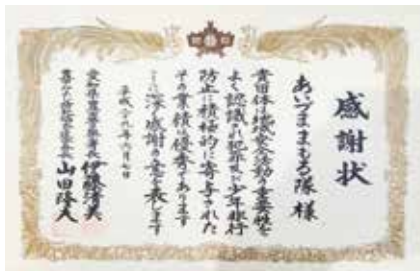 感謝状
あいづまもる隊 様
貴団体は地域安全活動の重要性を
よく認識され犯罪並に少年非行
防止に積極的に寄与された
その業績は優秀であります
ここに深く感謝の意を表します
平成二十八年六月七日
愛知県豊田警察署長
山田隆久